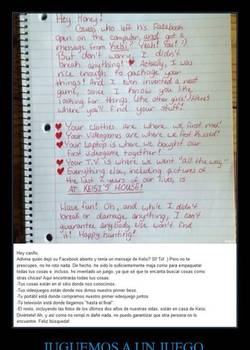 Hey Honey!
Guess who left his Facebook
open on the computer and got a
message from Keisi? Yeah! You! :)
But don't worry, I didn't
break anything! ♥ Actually, I was
nice enough to package your
things! And I even invented a new
game, since I know you like
looking for things (like other girls)! Here's
where you'll find your stuff!
♥ Your clothes are where we first met!
♥ Your videogames are where we first kissed!
♥ Your laptop is where we bought our
first videogame together!
♥ Your T.V. is where we went "all the way"!
♥ Everything else, including pictures
of the last 2 years of our lives, is
AT KEISI'S HOUSE!
Have fun! Oh, and while I didn't
break or damage anything, I can't
guarantee anybody else won't find
it! Happy hunting!
Hey cariño,
Adivina quién dejó su Facebook abierto y tenía un mensaje de Keisi? Sí! Tú! :) Pero no te
preocupes, no he roto nada. De hecho, he sido lo suficientemente maja como para empaquetar
todas tus cosas e, incluso, he inventado un juego, ya que sé que te encanta buscar cosas como
otras chicas! Aquí encontrarás todas tus cosas:
-Tus cosas están en el sitio donde nos conocimos.
-Tus videojuegos están donde nos dimos nuestro primer beso.
-Tu portátil está donde compramos nuestro primer videojuego juntos
-Tu televisión está donde llegamos "hasta el final".
-El resto, incluyendo las fotos de los últimos dos años de nuestras vidas, están en casa de Keisi.
Diviértete! Ah, y así como no rompí ni dañé nada, no puedo garantizar que otra persona no lo
encuentre. Feliz búsqueda!
JUGUEMOS A UN JUEGO